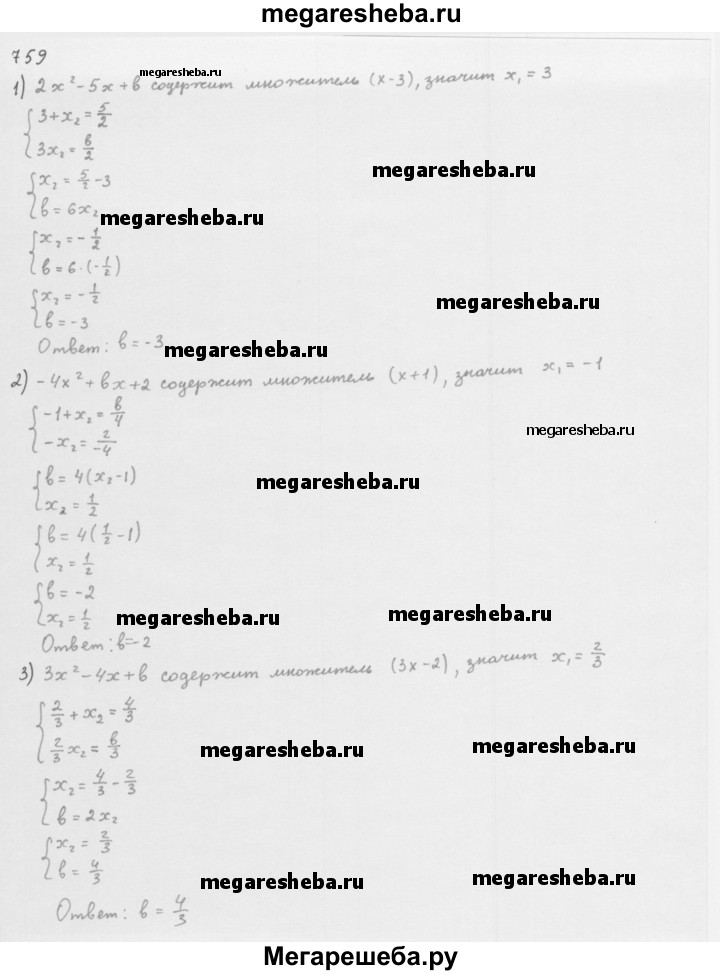 megaresheba.ru
759
megaresheba.ru
1) 2x² - 5x + b содержит множитель (x-3), значит x₁ = 3
{ 3 + x₂ = 5/2
3x₂ = b/2
megaresheba.ru
{ x₂ = 5/2 - 3
b = 6x₂
megaresheba.ru
{ x₂ = - 1/2
b = 6 · (- 1/2)
{ x₂ = - 1/2
b = -3
megaresheba.ru
Ответ: b = -3
megaresheba.ru
2) -4x² + bx + 2 содержит множитель (x+1), значит x₁ = -1
{ -1 + x₂ = b/4
-x₂ = 2/-4
megaresheba.ru
{ b = 4(x₂ - 1)
x₂ = 1/2
megaresheba.ru
{ b = 4(1/2 - 1)
x₂ = 1/2
{ b = -2
x₂ = 1/2
megaresheba.ru megaresheba.ru
Ответ: b = -2
3) 3x² - 4x + b содержит множитель (3x-2), значит x₁ = 2/3
{ 2/3 + x₂ = 4/3
2/3 x₂ = b/3
megaresheba.ru megaresheba.ru
{ x₂ = 4/3 - 2/3
b = 2x₂
{ x₂ = 2/3
b = 4/3
megaresheba.ru megaresheba.ru
Ответ: b = 4/3
Мегарешеба.ру